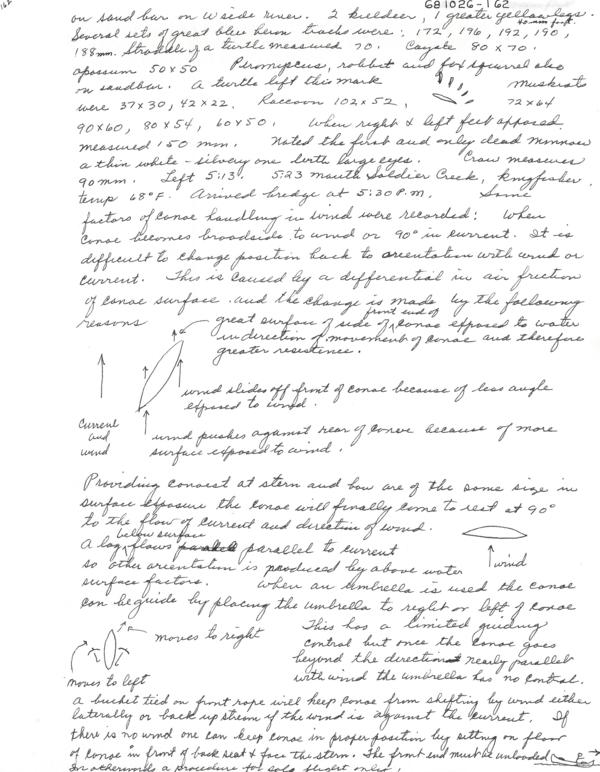 162
681026-162
on sand bar on W side river. 2 killdeer, 1 greater yellow legs.
40 mm foot
Several sets of great blue heron tracks were: 172, 196, 192, 190,
188 mm. Straddle of a turtle measured 70. Coyote 80 x 70.
opossum 50x50 Peromyscus, rabbit and fox squirrel also
on sandbar. A turtle left this mark Muskrats
were 37x30, 42x22. Raccoon 102x52, 72x64
90x60, 80x54, 60x50. When right & left feet opposed
measured 150 mm. Noted the first and only dead minnow
a thin white - silvery one with large eyes. Crow measures
90mm. Left 5:13. 5:23 mouth Soldier Creek, kingfisher,
temp 68°F. Arrived bridge at 5:30 P.M. Some
factors of canoe handling in wind were recorded: When
canoe becomes broadside to wind or 90° in current. It is
difficult to change position back to orientation with wind or
current. This is caused by a differential in air friction
of canoe surface and the change is made by the following
reasons
great surface of side of front end of canoe exposed to water
in direction of movement of canoe and therefore
greater resistance.
wind slides off front of canoe because of less angle
exposed to wind.
current
and
wind
wind pushes against rear of canoe because of more
surface exposed to wind.
Providing canoeist at stern and bow are of the same size in
surface exposure the canoe will finally come to rest at 90°
to the flow of current and direction of wind.
A log below surface flows parallel to current
so other orientation is produced by above water
wind
surface factors. When an umbrella is used the canoe
can be guide by placing the umbrella to right or left of canoe
moves to right
This has a limited guiding
control but once the canoe goes
beyond the direction nearly parallel
with wind the umbrella has no control.
moves to left
A bucket tied on front rope will keep canoe from shifting by wind either
laterally or back up stream if the wind is against the current. If
there is no wind one can keep canoe in proper position by sitting on floor
of canoe in front of back seat & face the stern. The front end must be unloaded
In otherwords a procedure for solo flight only.